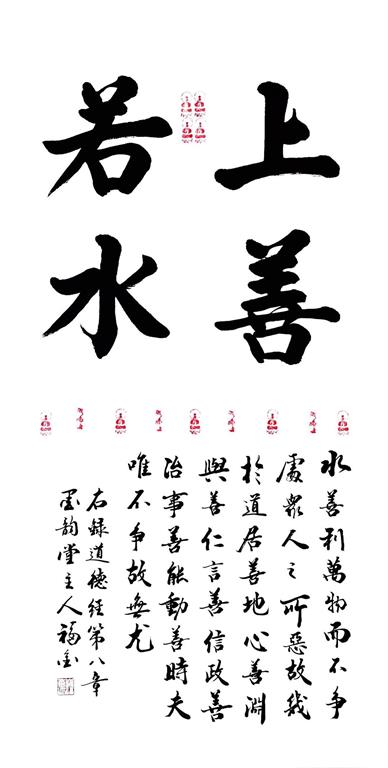 上善
若水
水善利萬物而不争
處衆人之所惡故幾
於道居善地心善淵
與善仁言善信政善
治事善能動善時夫
唯不争故無尤
右録道德經第八章
墨韵堂主人福